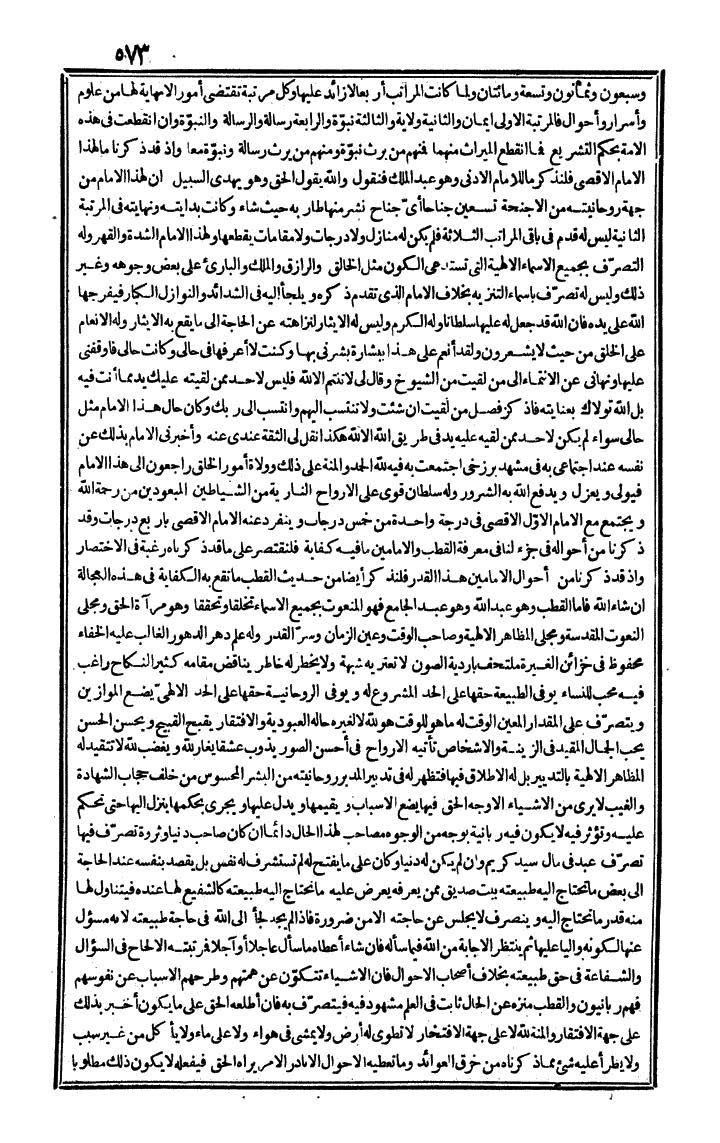 ٥٧٣
وسبعون وثمانون وتسعة ومائتان ولما كانت المراتب أربعا لا زائد عليها وكل مرتبة تقتضى أمورا لانهاية لها من علوم
وأسرار وأحوال فالمرتبة الاولى ايمان والثانية ولاية والثالثة نبوّة والرابعة رسالة والرسالة والنبوّة وان انقطعت فى هذه
الامة بحكم التشريع فما انقطع الميراث منهما فمنهم من يرث نبوّة ومنهم من يرث رسالة ونبوّة معا واذ قد ذكرنا ما لهذا
الامام الاقصى فلنذكر ما للامام الادنى وهو عبد الملك فنقول والله يقول الحق وهو يهدى السبيل ان لهذا الامام من
جهة روحانيته من الاجنحة تسعين جناحا أىّ جناح نشر منها طار به حيث شاء وكانت بدايته ونهايته فى المرتبة
الثانية ليس له قدم فى باقى المراتب الثلاثة فلم يكن له منازل ولا درجات ولا مقامات يقطعها ولهذا الامام الشدة والقهر وله
التصرّف بجميع الاسماء الالهية التى تستدعى الكون مثل الخالق والرازق والملك والبارئ على بعض وجوهه وغير
ذلك وليس له تصرّف باسماء التنزيه بخلاف الامام الذى تقدم ذكره و يلجأ اليه فى الشدائد والنوازل الكبار فيفرجها
الله على يده فان الله قد جعل له عليها سلطانا وله الكرم وليس له الايثار لنزاهته عن الحاجة الى ما يقع به الايثار وله الانعام
على الخلق من حيث لا يشعرون ولقد أنعم علىّ هذا ببشارة بشرنى بها وكنت لا أعرفها فى حالى وكانت حالى فاوقفنى
عليها ونهانى عن الانتماء الى من لقيت من الشيوخ وقال لى لا تنتم الا لله فليس لاحد ممن لقيته عليك يد مما أنت فيه
بل الله تولاك بعنايته فاذكر فضل من لقيت ان شئت ولا تنتسب اليهم وانتسب الى ربك وكان حال هذا الامام مثل
حالى سواء لم يكن لاحد ممن لقيه عليه يد فى طريق الله الا لله هكذا نقل لى الثقة عندى عنه وأخبرنى الامام بذلك عن
نفسه عند اجتماعى به فى مشهد برزخى اجتمعت به فيه لله الحمد والمنة على ذلك وولاة أمور الخلق راجعون الى هذا الامام
فيولى ويعزل ويدفع الله به الشرور وله سلطان قوى على الارواح النارية من الشياطين المبعودين من رحمة الله
ويجتمع مع الامام الاوّل الاقصى فى درجة واحدة من خمس درجات وينفرد عنه الامام الاقصى باربع درجات وقد
ذكرنا من أحواله فى جزء لنا فى معرفة القطب والامامين ما فيه كفاية فلنقتصر على ما قد ذكرناه رغبة فى الاختصار
واذ قد ذكرنا من أحوال الامامين هذا القدر فلنذكر أيضا من حديث القطب ما تقع به الكفاية فى هذه العجالة
ان شاء الله فاما القطب وهو عبد الله وهو عبد الجامع فهو المنعوت بجميع الاسماء تخلقا وتحققا وهو مرآة الحق ومجلى
النعوت المقدسة ومجلى المظاهر الالهية وصاحب الوقت وعين الزمان وسرّ القدر وله علم دهر الدهور الغالب عليه الخفاء
محفوظ فى خزائن الغيرة ملتحف باردية الصون لا تعتريه شبهة ولا يخطر له خاطر يناقض مقامه كثير النكاح راغب
فيه محب للنساء يوفى الطبيعة حقها على الحد المشروع له و يوفى الروحانية حقها على الحد الالهىّ يضع الموازين
ويتصرّف على المقدار المعين الوقت له ما هو للوقت هو لله لا لغيره حاله العبودية والافتقار يقبح القبيح ويحسن الحسن
يحب الجمال المقيد فى الزينة والاشخاص تأتيه الارواح فى أحسن الصور يذوب عشقا يغار لله ويغضب لله لا تتقيد له
المظاهر الالهية بالتدبير بل له الاطلاق فيها فتظهر له فى تدبير المدبر روحانيته من البشر المحسوس من خلف حجاب الشهادة
والغيب لا يرى من الاشياء الا وجه الحق فيها يضع الاسباب ويقيمها ويدل عليها ويجرى بحكمها ينزل اليها حتى تحكم
عليه وتؤثر فيه لا يكون فيه ربانية بوجه من الوجوه مصاحب لهذا الحال دائما ان كان صاحب دنيا وثروة تصرّف فيها
تصرّف عبد فى مال سيد كريم وان لم يكن له دنيا وكان على ما يفتح له لم تستشرف له نفس بل يقصد بنفسه عند الحاجة
الى بعض ما تحتاج اليه طبيعته بيت صديق ممن يعرفه يعرض عليه ما تحتاج اليه طبيعته كالشفيع لها عنده فيتناول لها
منه قدر ما تحتاج اليه وينصرف لا يجلس عن حاجته الا من ضرورة فاذا لم يجد لجأ الى الله فى حاجة طبيعته لانه مسؤل
عنها لكونه واليا عليها ثم ينتظر الاجابة من الله فيما سأله فان شاء أعطاه ما سأل عاجلا أو آجلا فرتبته الالحاح فى السؤال
والشفاعة فى حق طبيعته بخلاف أصحاب الاحوال فان الاشياء تتكوّن عن همتهم وطرحهم الاسباب عن نفوسهم
فهم ربانيون والقطب منزه عن الحال ثابت فى العلم مشهود فيه فيتصرّف به فان أطلعه الحق على ما يكون أخبر بذلك
على جهة الافتقار والمنة لله لا على جهة الافتخار لا تطوى له أرض ولا يمشى فى هواء ولا على ماء ولا يأكل من غير سبب
ولا يطرأ عليه شئ مما ذكرناه من خرق العوائد وما تعطيه الاحوال الا نادرا لامر يراه الحق فيفعله لا يكون ذلك مطلوبا